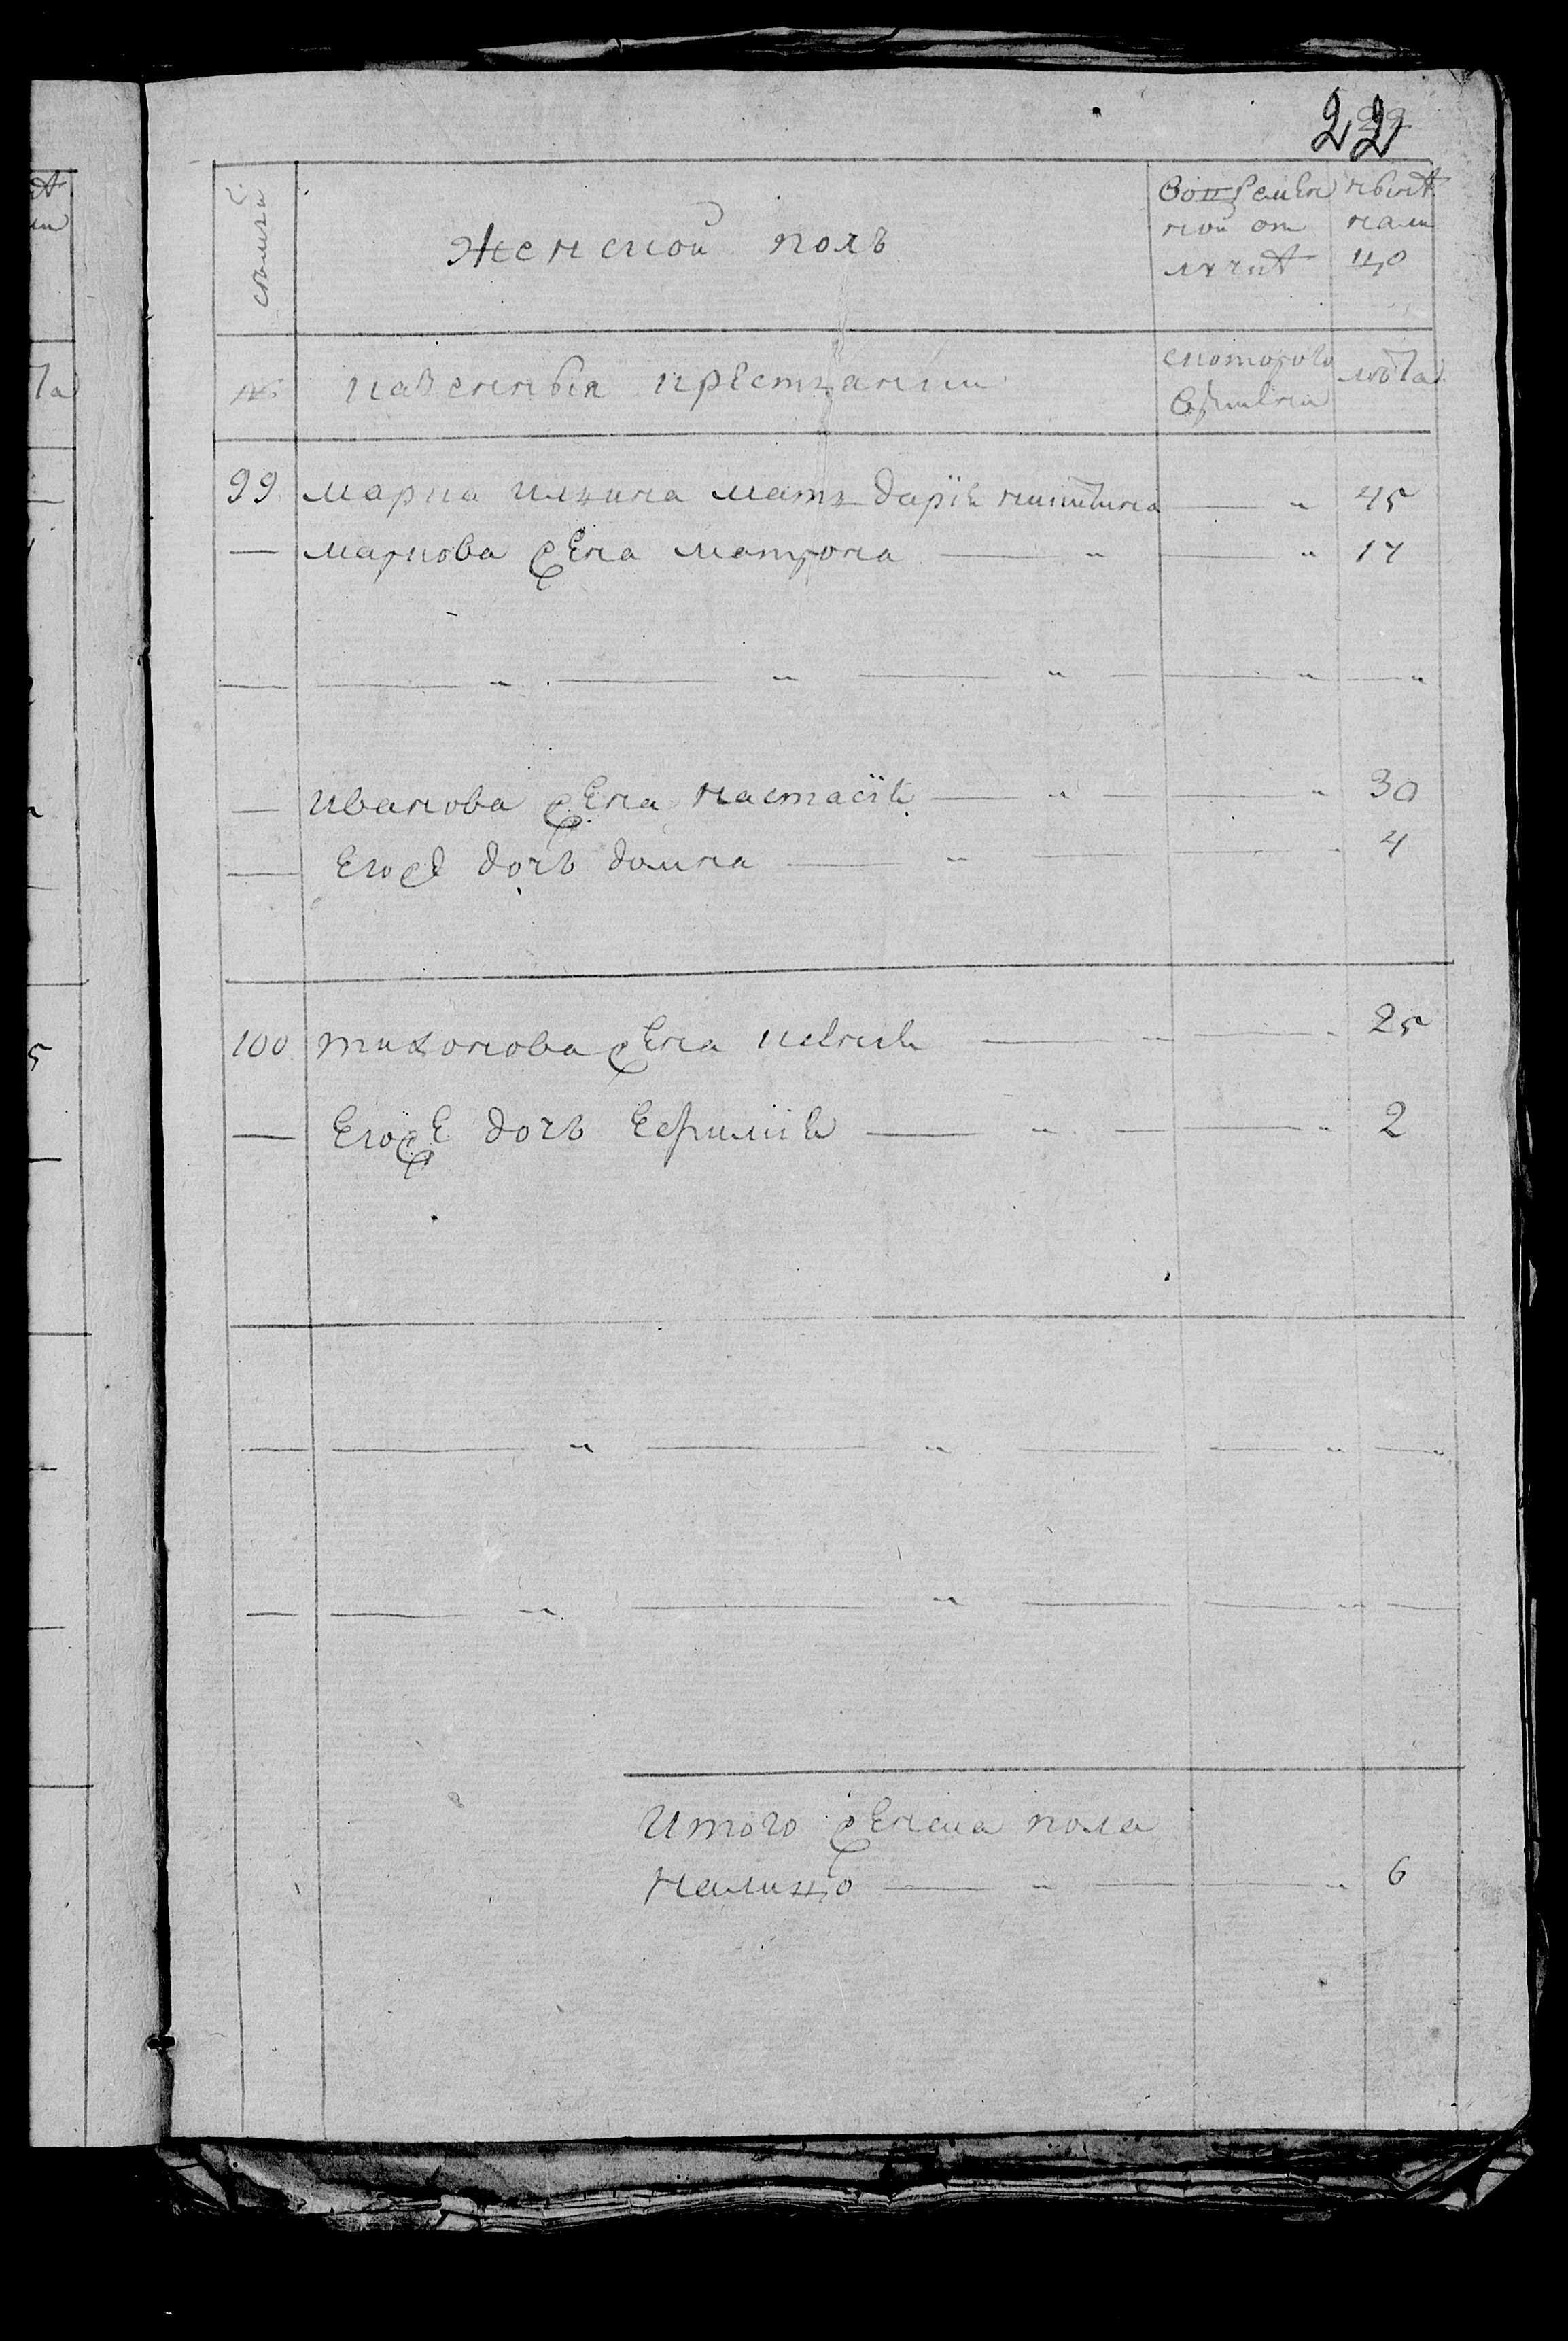 22
семьи
женской полъ
во временной отлучкѣ
нынѣ налицо
№
казенныя крестьянки
с котораго времяни
лѣта
99 марка ильина мать дарія никитина — " 45
— маркова жена матрона — " — " 17
— — " — " — " — — " — "
— иванова жена настасія — " — " 30
— Его же дочь домна — " — — " 4
100 тихонова жена ксения — " — " 25
— Его же дочь Ефимия — " — — " 2
— — " — " — — " — "
— — " — " — — " —
Итого женска пола
налицо — " — — " 6